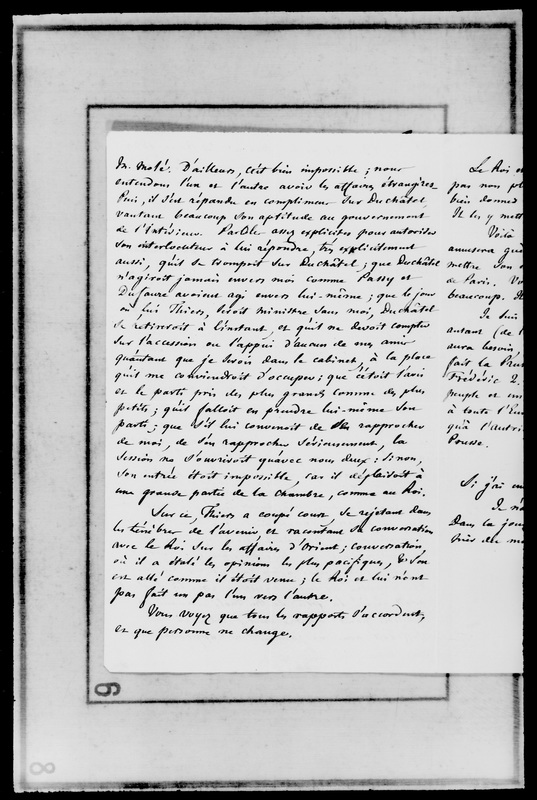 M. Molé. D'ailleurs, c'est bien impossible ; nous
entendons l'un et l'autre avoir les affaires étrangères.
Puis, il s'est répandu en compliment sur Duchâtel,
vantant beaucoup son aptitude au gouvernement
de l'Intérieur. Parole assez explicite pour autoriser
son interlocuteur à lui répondre, très explicitement
aussi, qu'il se trompoit sur Duchâtel ; que Duchâtel
n'agiroit jamais envers moi comme Passy et
Dufaure avoient agi envers lui-même ; que le jour
où lui Thiers, seroit ministre sans moi, Duchâtel
se retireroit à l'instant, et qu'il ne devoit compter
sur l'accession ou l'appui d'aucun de mes amis
qu'autant que je serois dans le cabinet, à la place
qu'il me conviendroit d'occuper ; que c'étoit l'avis
et le parti pris des plus grands comme des plus
petits ; qu'il falloit en prendre lui-même son
parti ; que s'il lui convenoit de se rapprocher
de moi, de s'en rapprocher sérieusement, la
session ne s'ouvriroit qu'avec nous deux : sinon,
son entrée étoit impossible, car il déplaisoit à
une grande partie de la chambre, comme au Roi.
Sur ce, Thiers a coupé court, se rejetant dans
les ténèbres de l'avenir et racontant sa conversation
avec le Roi sur les affaires d'Orient ; conversation
où il a étalé les opinions les plus pacifiques, & s'en
est allé comme il étoit venu ; le Roi et lui n'ont
pas fait un pas l'un vers l'autre.
Vous voyez que tous les rapports s'accordent,
et que personne ne change.
Le Roi
pas non
bien donner
Il les y
Voilà
amusera
mettre son
de Paris.
beaucoup.
Je suis
autant (de
aura besoin
fait la
Frédéric 2.
peuple et
à toute
qu'à
Prusse.
Si j'ai
Je
Dans la
6
8